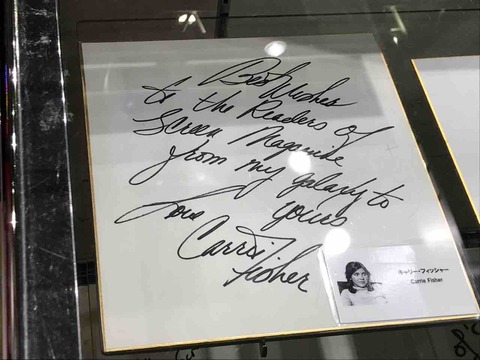 Best Wishes
to the Readers of
Screen Magazine
from my galaxy to
yours
Love
Carrie
Fisher
キャリー・フィッシャー
Carrie Fisher